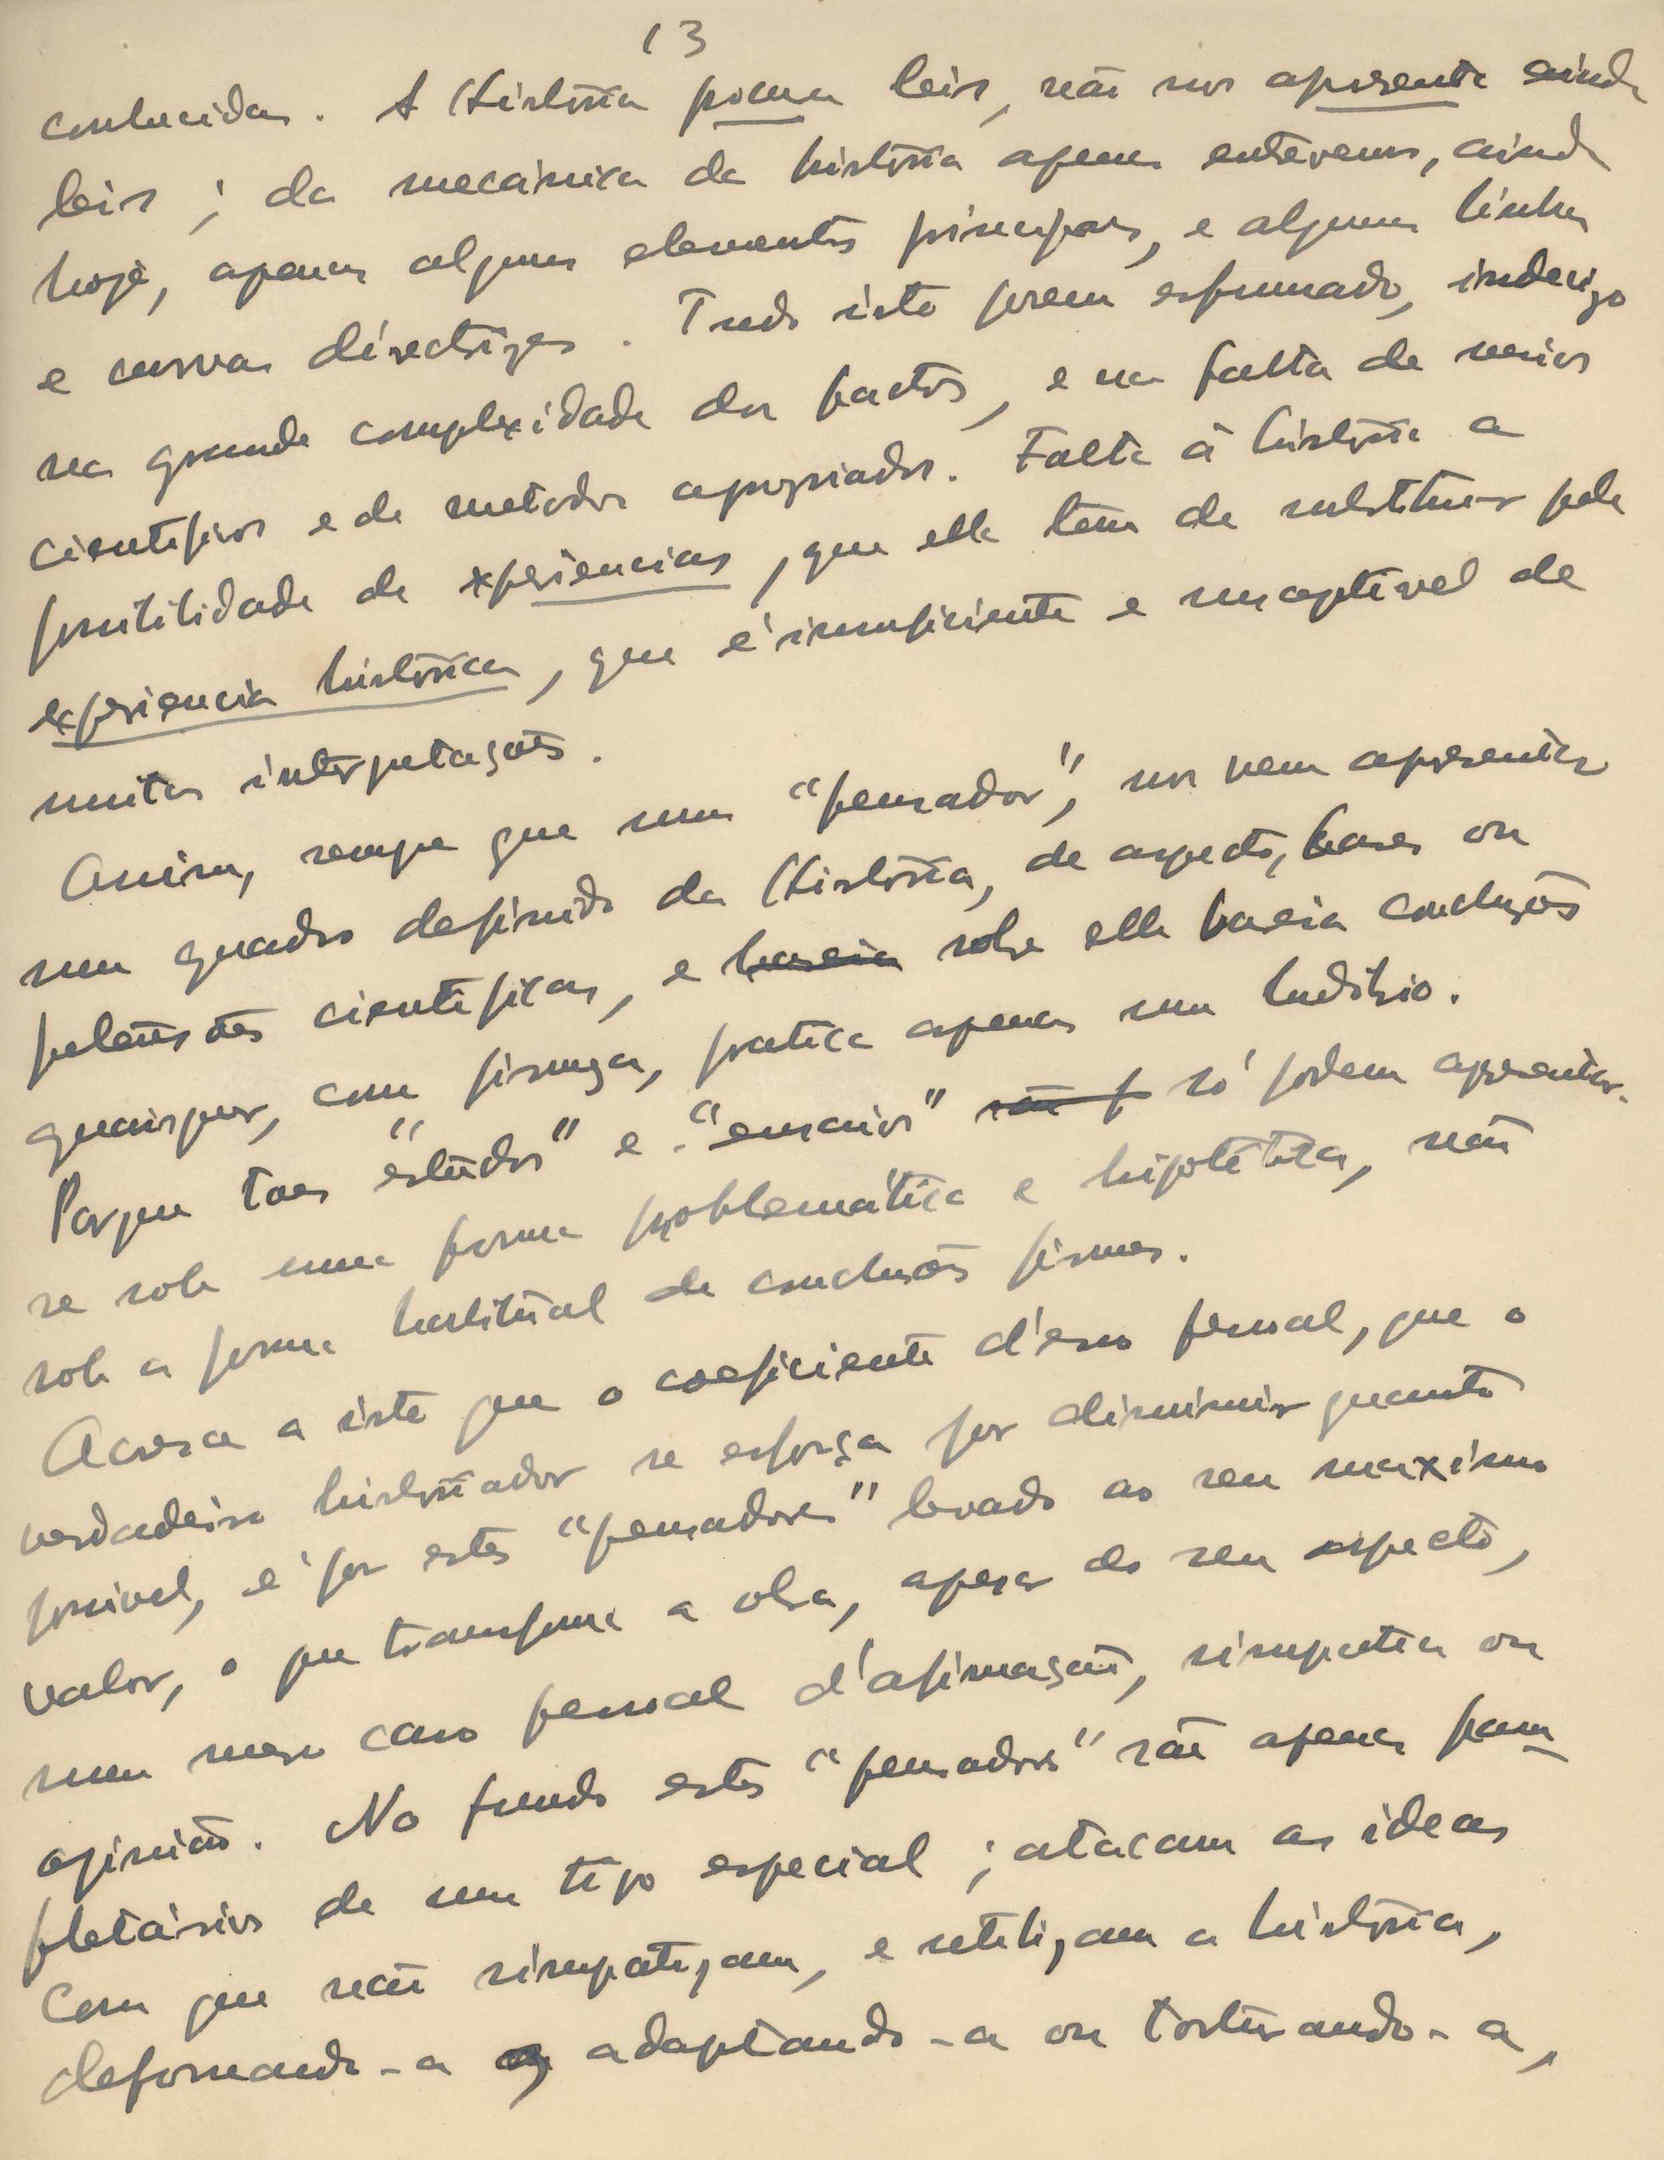 13
conhecidas. A História possua leis, não nos apresenta ainda
leis; da mecánica da história apenas entrevemos, ainda
hoje, apenas alguns elementos principaes, e algumas linhas
e curvas directrizes. Tudo isto porem esfumado, indeciso
na grande complexidade dos factos, e na falta de meios
cientificos e de metodos apropriados. Falta á história a
possibilidade de experiencias, que ella tem de substituir pela
experiencia histórica, que é insuficiente e susceptivel de
muitas interpretações.
Assim, sempre que um "pensador", nos vem apresentar
um quadro definido da História, de aspecto, bases ou
pretensões cientificas, e baseia sobre elle baseia conclusões
quaisquer, com firmeza, pratica apenas um ludibrio.
Porque taes "estudos" e "ensaios" não p só podem apresentar-
se sob uma forma problemática e hipotética, não
sob a forma habitual de conclusões firmes.
Acresce a isto que o coeficiente d'erro pessoal, que o
verdadeiro historiador se esforça por diminuir quanto
possivel, é por estes "pensadores" levado ao seu maximo
valor, o que transforma a obra, apesar do seu aspecto,
num mero caso pessoal d'afirmação, simpatia ou
opinião. No fundo estes "pensadores" são apenas pam
fletários de um tipo especial; atacam as ideas
com que não simpatizam, e utilizam a história,
deformando-a, adaptando-a ou torturando-a,